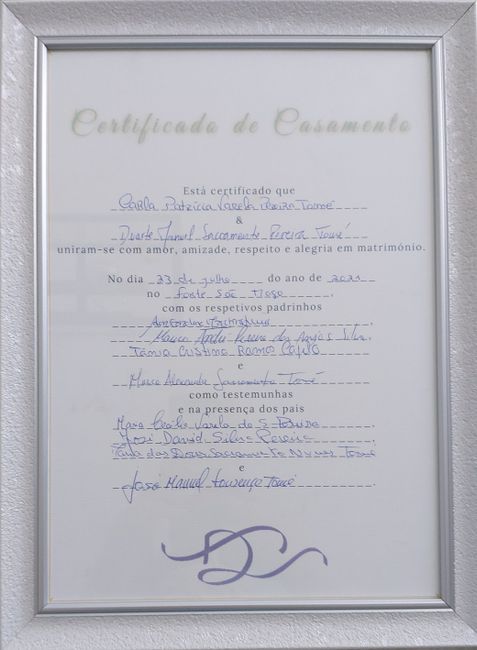 Certificado de Casamento
Está certificado que
Carla Patrícia Varela Pereira Tomé
&
Duarte Manuel Sacramento Pereira Tomé
uniram-se com amor, amizade, respeito e alegria em matrimónio.
No dia 23 de julho do ano de 2021
no Forte São Tiago,
com os respetivos padrinhos
Marco André Pereira dos Anjos Silva,
Tânia Cristina Ramos Cafelo
e
Marco Alexandre Sacramento Tomé
como testemunhas
e na presença dos pais
Varela de S.
José David Silva Pereira,
Nunes Tomé
e
José Manuel Lourenço Tomé.
DC